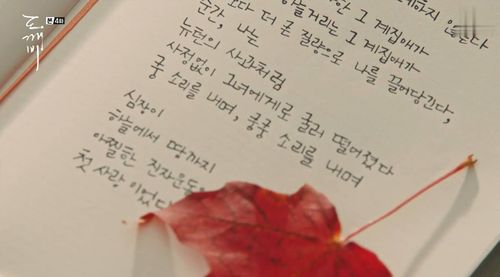 도깨비
본 4화
하지 않는다
그 계집애가
거리는 그 계집애가
보다 더 큰 질량으로 나를 끌어당긴다,
순간, 나는
뉴턴의 사과처럼
사정없이 그녀에게로 굴러 떨어졌다
쿵 소리를 내며, 쿵쿵 소리를 내며
심장이
하늘에서 땅까지
아찔한 진자운동
첫사랑이었다